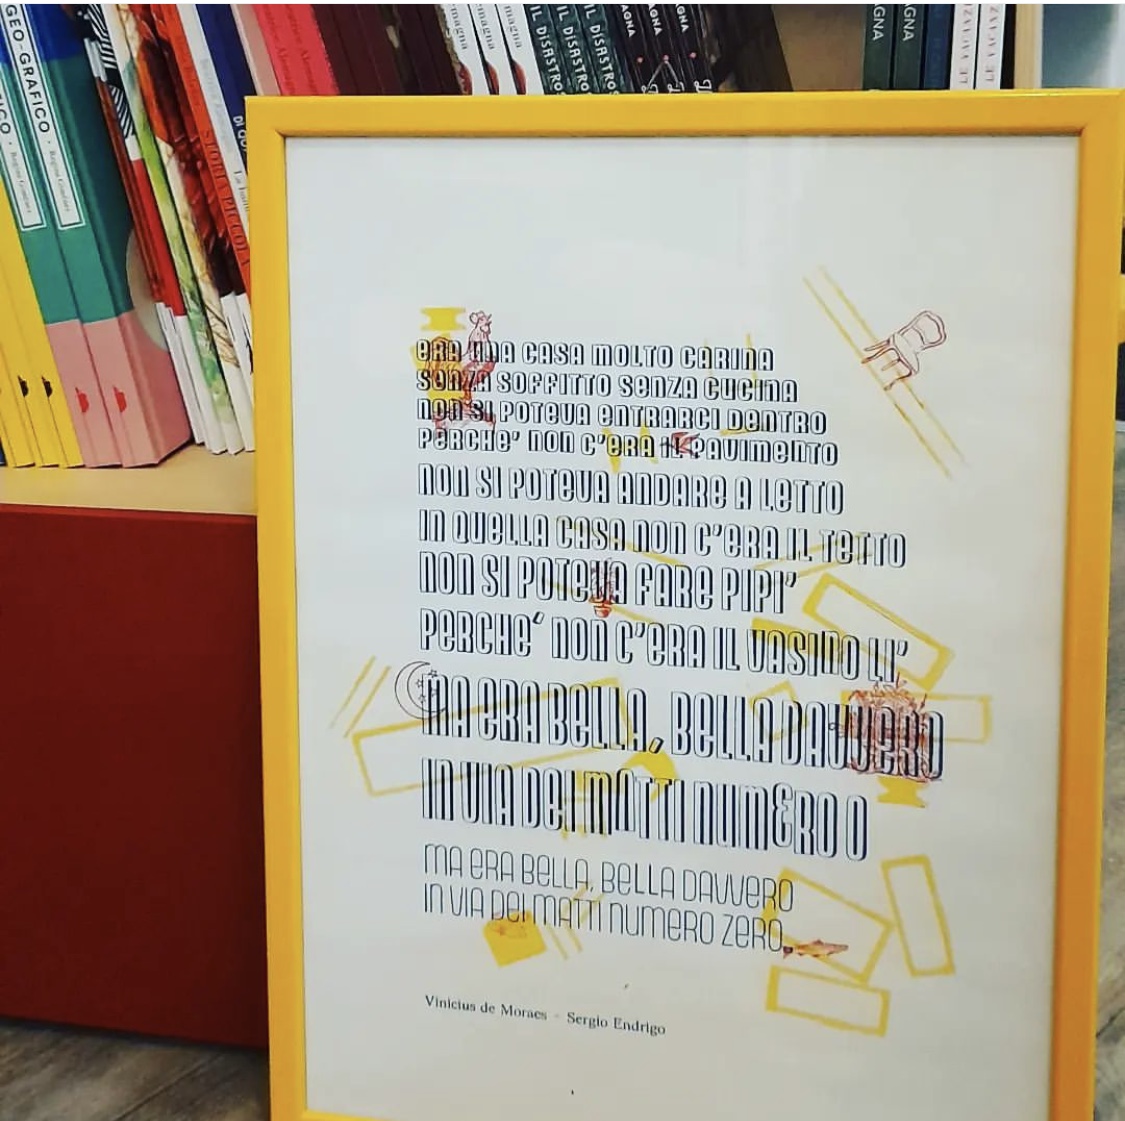 GEO-GRAFICO •
Regina Giménez
GEO-GRAFICO •
Regina Giménez
STORIA PICCOLA
IL DISASTRO
IL DISASTROS
IL DISASTROS
AGNA
AGNA
AGNA
AGNA
AGNA
LE VACANZ
LE VACANZ
ERA UNA CASA MOLTO CARINA
SENZA SOFFITTO SENZA CUCINA
NON SI POTEVA ENTRARCI DENTRO
PERCHE' NON C'ERA IL PAVIMENTO
NON SI POTEVA ANDARE A LETTO
IN QUELLA CASA NON C'ERA IL TETTO
NON SI POTEVA FARE PIPI'
PERCHE' NON C'ERA IL VASINO LI'
MA ERA BELLA, BELLA DAVVERO
IN VIA DEI MATTI NUMERO 0
MA ERA BELLA, BELLA DAVVERO
IN VIA DEI MATTI NUMERO ZERO.
Vinicius de Moraes - Sergio Endrigo